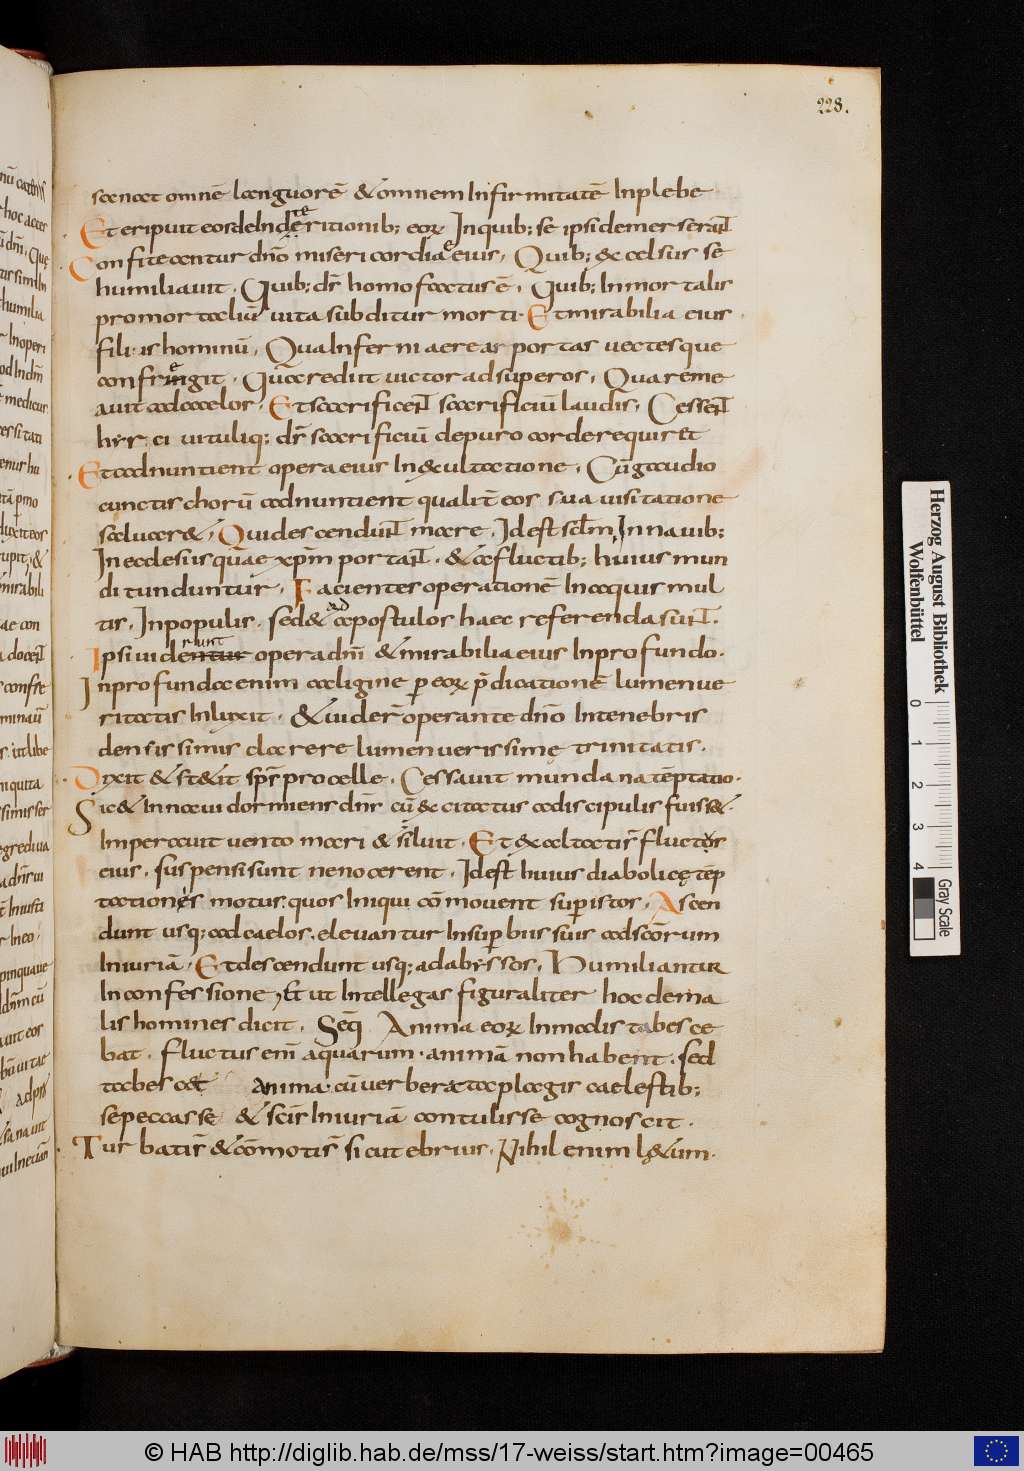 228.
sanat omnē languorē & omnem Infirmitatē Inplebe
Et eripuit eos de Inderitionib; eoꝝ Inquib; se ipsi demerserunt
Confiteantur dn̄o misericordiae eius, Quib; excelsus se
humiliauit. Quib; dn̄s homo factus ē, Quib; Inmortalis
promortaliū uita subditur morti. Et mirabilia eius
filiis hominū, Qua Inferni aereas portas uectesque
confrengit. Qua rediit uictor ad superos, Qua reme
auit ad caelos. Et sacrificent sacrificiū laudis, Cessent
hyrci uituliq; dn̄s sacrificiū depuro corde requiret
Et adnuntient opera eius Inexultatione, Cū gaudio
cunctis chorū adnuntient qualit̄ eos sua uisitatione
saluaret, Qui descendunt mare. Id est sc̄lm, Innauib;
In ecclesiis quae xp̄m portant. & a fluctib; huius mun
di tunduntur. Facientes operationē Inaquis mul
tis, Inpopulis. sed & ad apostulos haec referenda sunt.
Ipsi uiderunt opera dn̄i & mirabilia eius Inprofundo.
Inprofunda enim caligine p eoꝝ p̄dicationē lumen ue
ritatis Inluxit. & uider̄ operante dn̄o Intenebris
densissimis clarere lumen uerissimę trinitatis.
Dixit & stetit sps̄ procelle. Cessauit mundana tēptatio.
Sic & Innaui dormiens dn̄s cū excitatus a discipulis fuisset.
Imperauit uento mari & siluit. Et exaltati s̄ fluctus
eius. suspensi sunt ne nocerent. Id est huius diabolicę tēp
tationis motus. quos Iniqui cōmouent sup istos. Ascen
dunt usq; ad caelos. eleuantur Insupbiis suis ad sc̄orum
Iniuriā. Et descendunt usq; ad abyssos, Humiliantur
Inconfessione, Et ut Intellegas figuraliter hoc dema
lis homines dicit. Seq̄ Anima eoꝝ Inmalis tabesce
bat. fluctus enī aquarum. animā non habent. sed
tabescat anima. cū uerberata plagis caelestib;
se peccasse & sc̄is Iniuriā contulisse cognoscit.
Turbati s̄ & cōmoti s̄ sicut ebrius. Nihil enim lętum.
Herzog August Bibliothek
Wolfenbüttel
0 1 2 3 4
Gray Scale
© HAB http://diglib.hab.de/mss/17-weiss/start.htm?image=00465